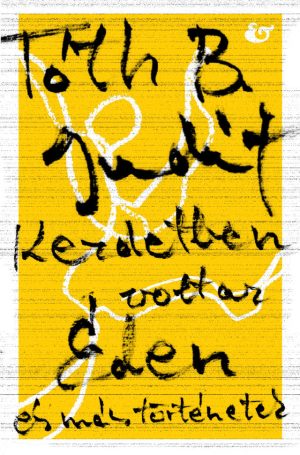 &
Tóth B.
Judit
Kezdetben
voltar
Éden
és más történetek